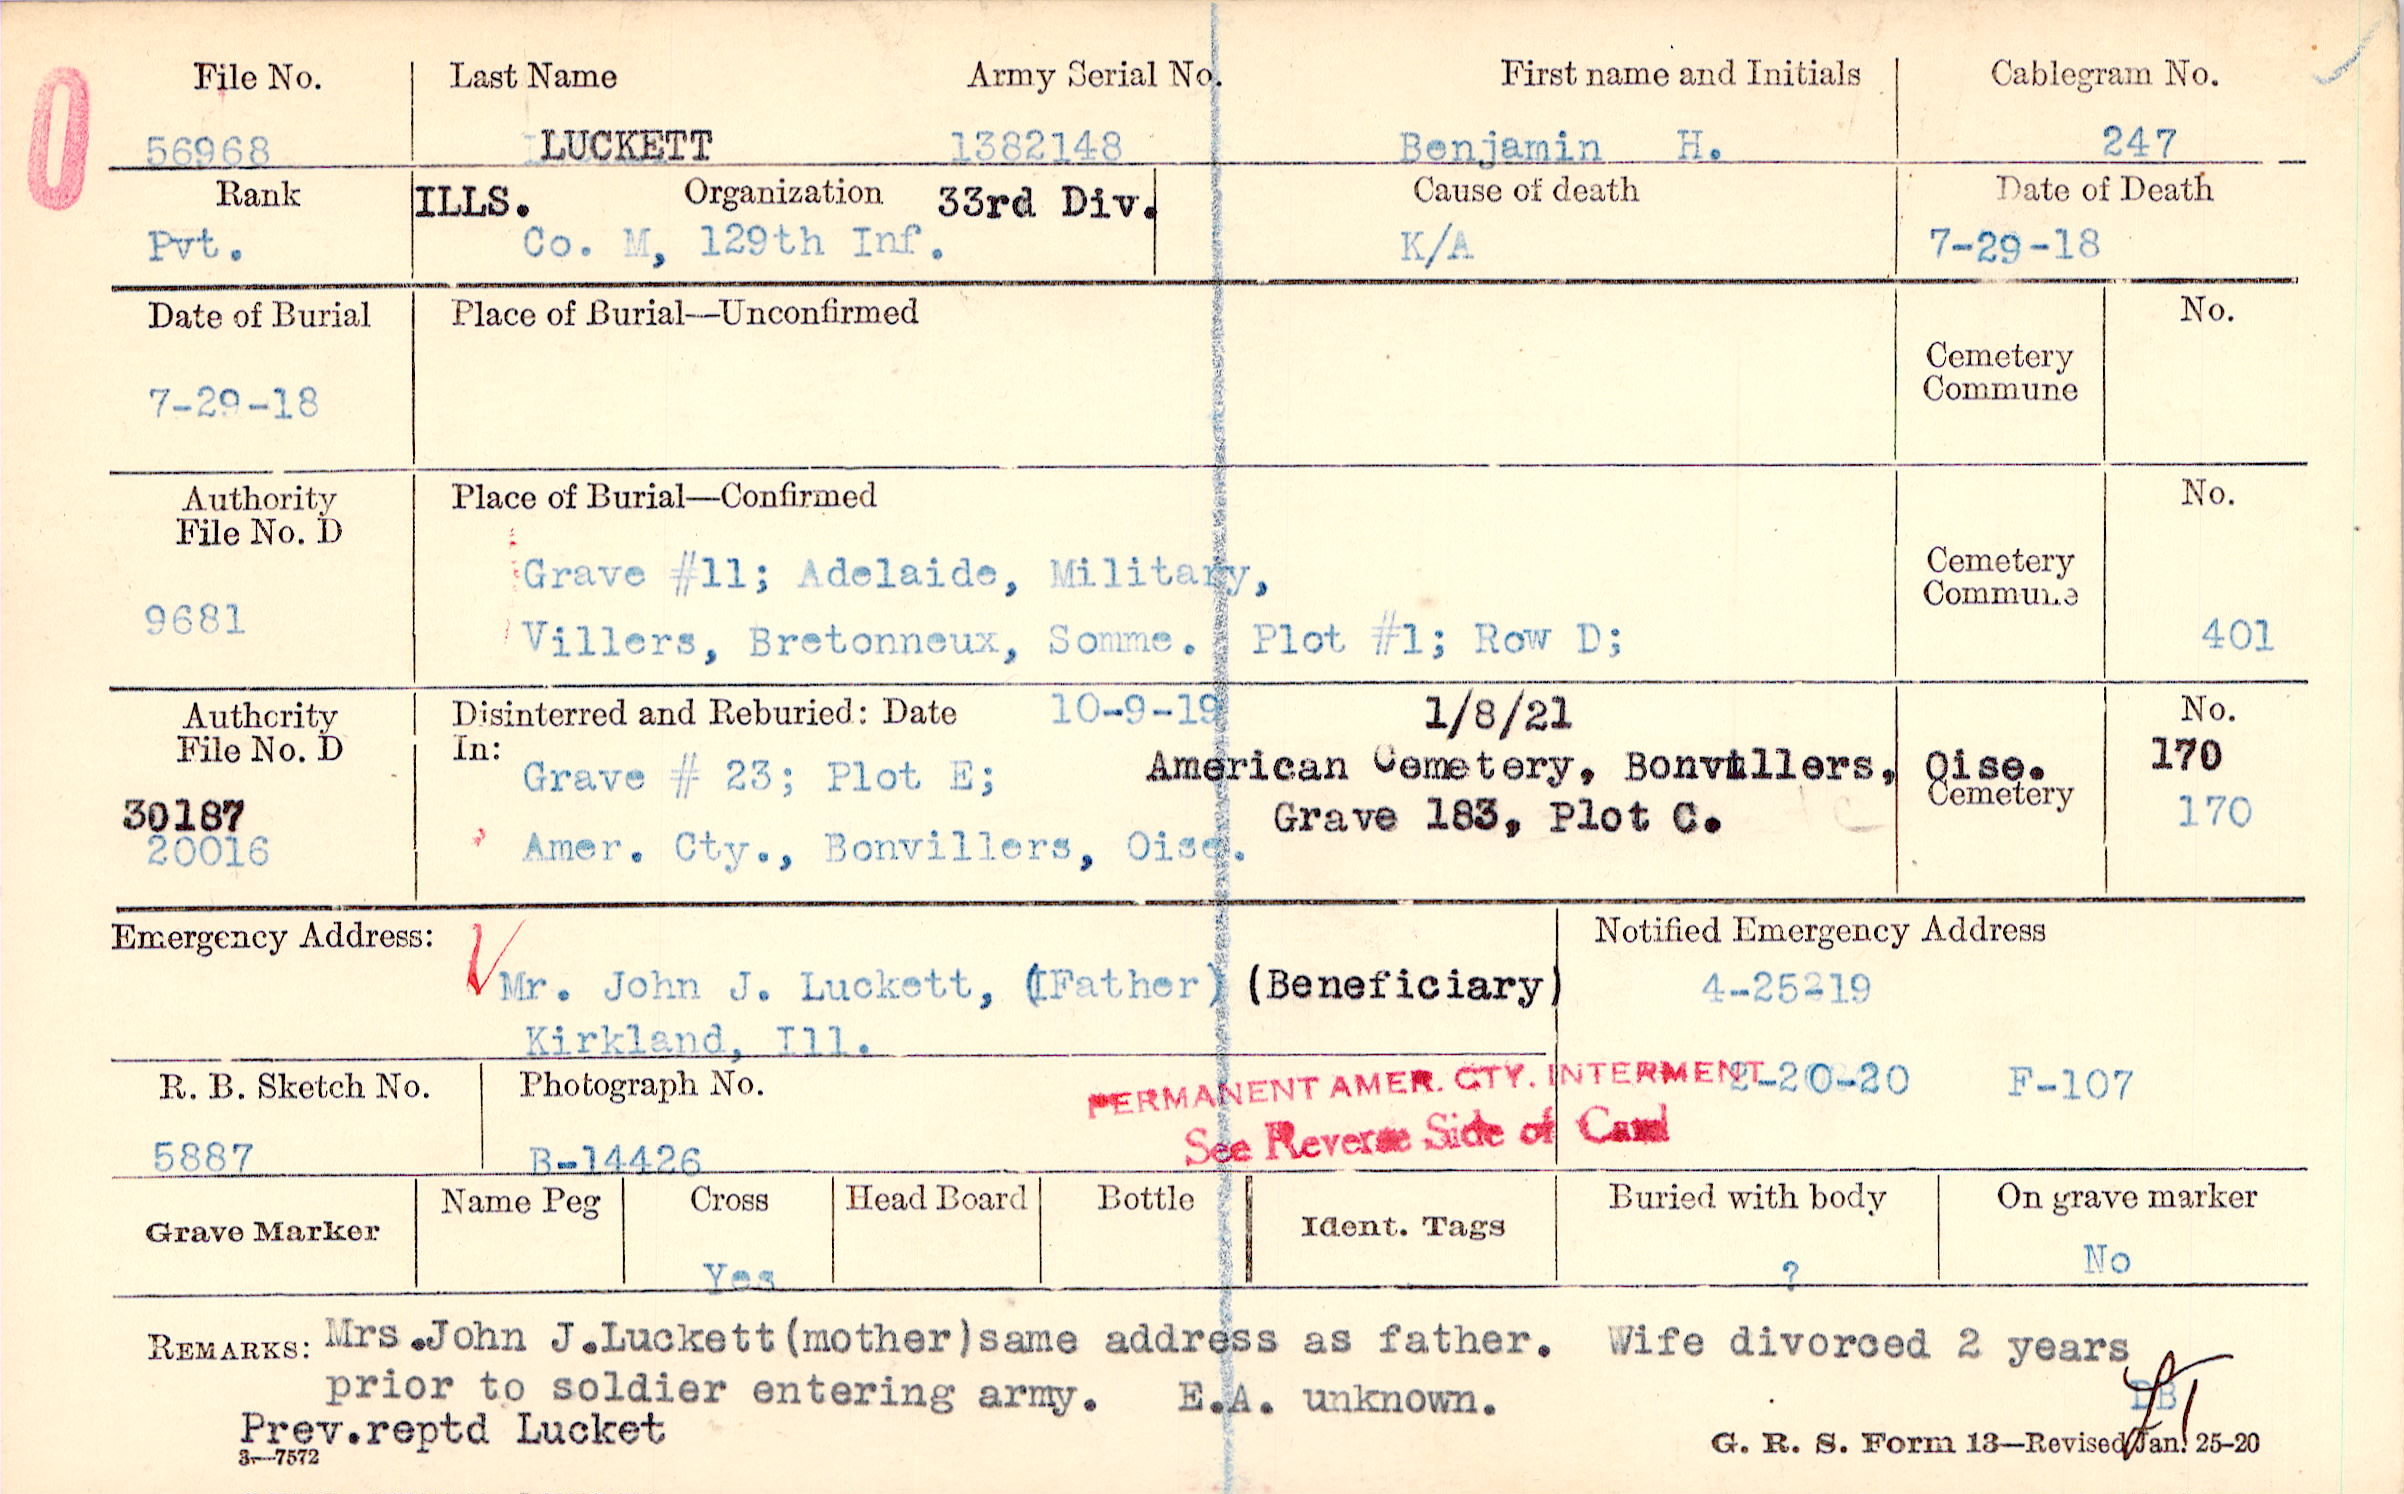 File No. Last Name Army Serial No. First name and Initials Cablegram No.
56968 LUCKETT 1382148 Benjamin H. 247
Rank ILLS. Organization 33rd Div. Cause of death Date of Death
Pvt. Co. M, 129th Inf. K/A 7-29-18
Date of Burial Place of Burial—Unconfirmed No.
Cemetery
Commune
7-29-18
Authority Place of Burial—Confirmed No.
File No. D
Grave #11; Adelaide, Military, Cemetery
Commune
9681 Villers, Bretonneux, Somme. Plot #1; Row D; 401
Authority Disinterred and Reburied: Date 10-9-19 1/8/21 No.
File No. D In: American Cemetery, Bonvillers, Oise. 170
Grave # 23; Plot E; Cemetery
30187 Grave 183, Plot C. 170
20016 Amer. Cty., Bonvillers, Oise.
Emergency Address: Notified Emergency Address
Mr. John J. Luckett, (Father) (Beneficiary) 4-25-19
Kirkland, Ill.
R. B. Sketch No. Photograph No. PERMANENT AMER. CTY. INTERMENT 2-20-20 F-107
See Reverse Side of Card
5887 B-14426
Grave Marker Name Peg Cross Head Board Bottle Ident. Tags Buried with body On grave marker
Yes ? No
REMARKS: Mrs.John J.Luckett(mother)same address as father. Wife divorced 2 years
prior to soldier entering army. E.A. unknown. DB
Prev.reptd Lucket
3—7572 G. R. S. Form 13—Revised Jan. 25-20